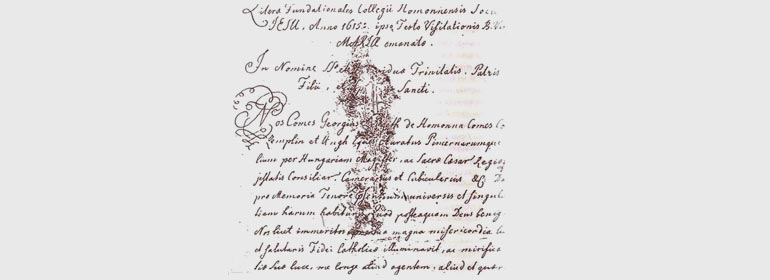 Litera Fundationales Collegii Homonnensis Soc
JESU. Anno 1615. ipso Festo Visitationis B. V.
MARIA emanato.
In Nomine Individuae Trinitatis. Patris
Filii, et Sancti.
Nos Comes Georgius de Homonna Comes
Zemplin et Ungh Pincernarumque
lium per Hungariam Magister, ac Sacrae Caesar Regiae
jestatis Consiliar. Camerarius et Cubicularius &c
pro Memoria Tenore universis et singul
tiam harum habituris quod posteaquam Deus benig
Nos licet immeritos magna misericordia
et salutaris Fidei Catholicae illuminavit, ac mirifica
tis sua luce, nec longe aliud agentem, aliud et quae